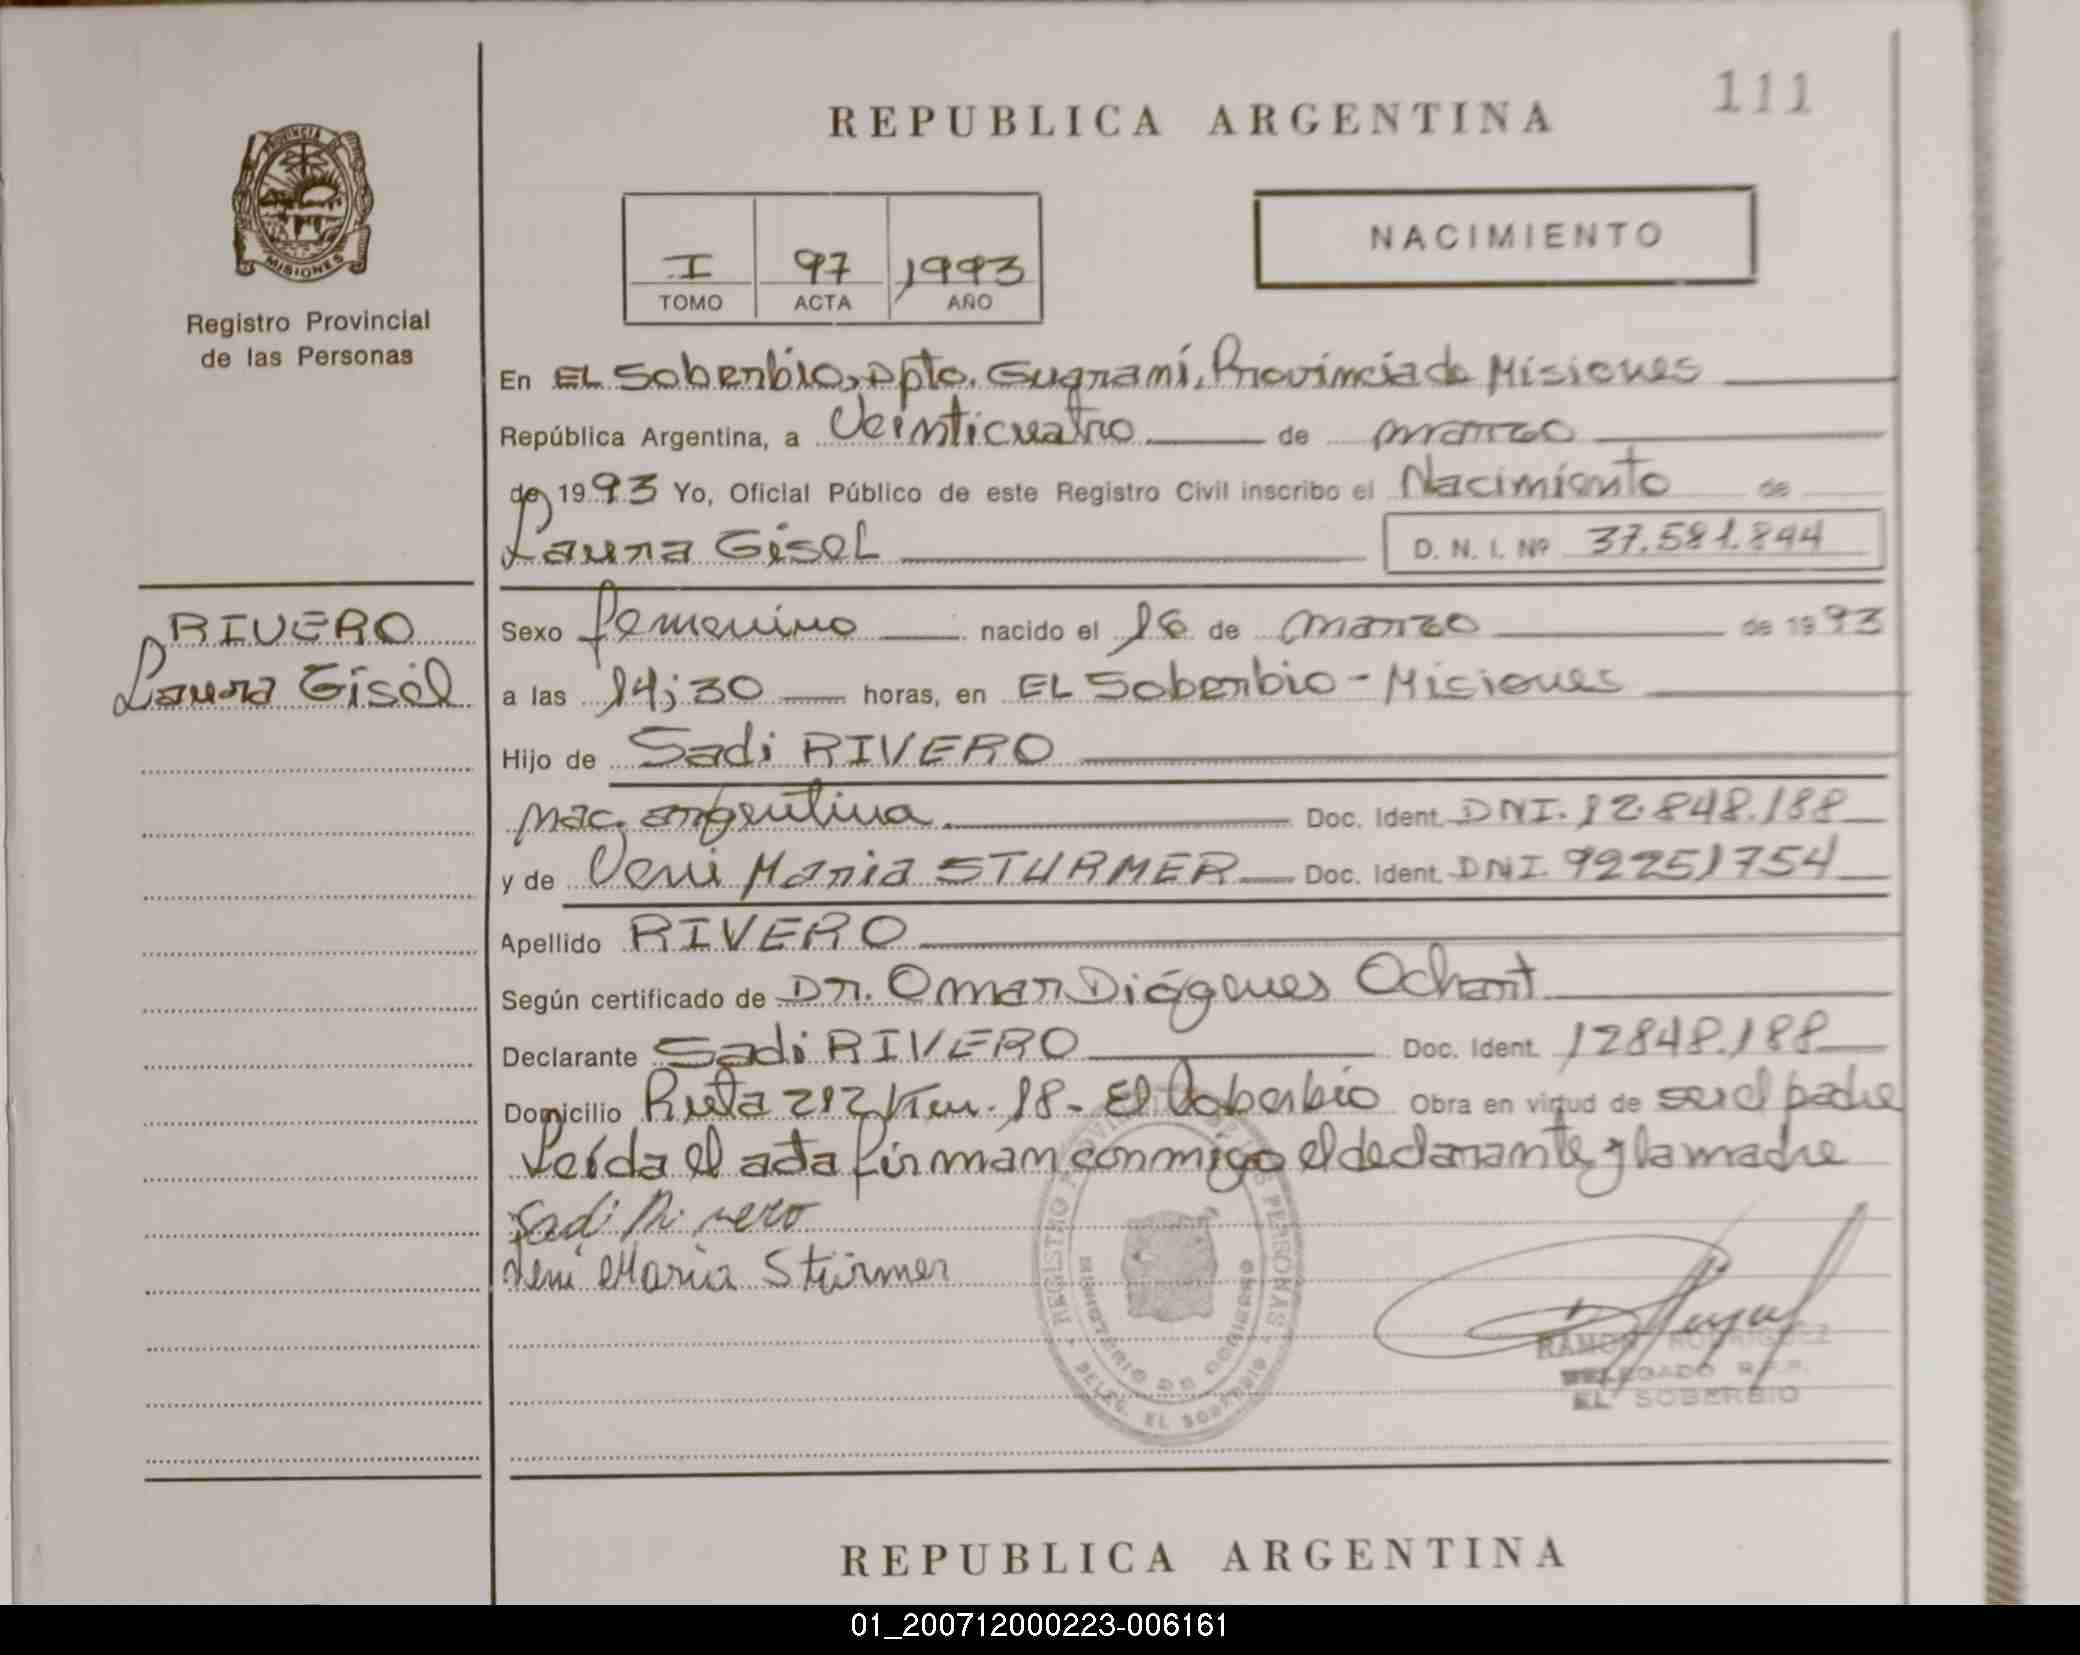 111
REPUBLICA ARGENTINA
PROVINCIA
MISIONES
Registro Provincial
de las Personas
I 97 1993
TOMO ACTA AÑO
NACIMIENTO
En EL Soberbio, Dpto. Guaraní, Provincia de Misiones
República Argentina, a Veinticuatro de marzo
de 1993 Yo, Oficial Público de este Registro Civil inscribo el Nacimiento de
Laura Gisel D. N. I. Nº 37.581.844
RIVERO
Laura Gisel
Sexo femenino nacido el 16 de marzo de 1993
a las 14;30 horas, en EL Soberbio - Misiones
Hijo de Sadi RIVERO
nac. argentina Doc. Ident. DNI. 12.848.188
y de Veni Maria STURMER Doc. Ident. DNI 92251754
Apellido RIVERO
Según certificado de Dr. Omar Diógenes Ochart
Declarante Sadi RIVERO Doc. Ident. 12848.188
Domicilio Ruta 212 Km. 18 - El Soberbio Obra en virtud de ser el padre
Leída el acta firman conmigo el declarante y la madre
Sadi Rivero
Veni Maria Stürmer
REGISTRO PROVINCIAL DE LAS PERSONAS
MINISTERIO DE GOBIERNO
DELEG. EL SOBERBIO
RAMON RODRIGUEZ
DELEGADO R.P.P.
EL SOBERBIO
REPUBLICA ARGENTINA
01_200712000223-006161